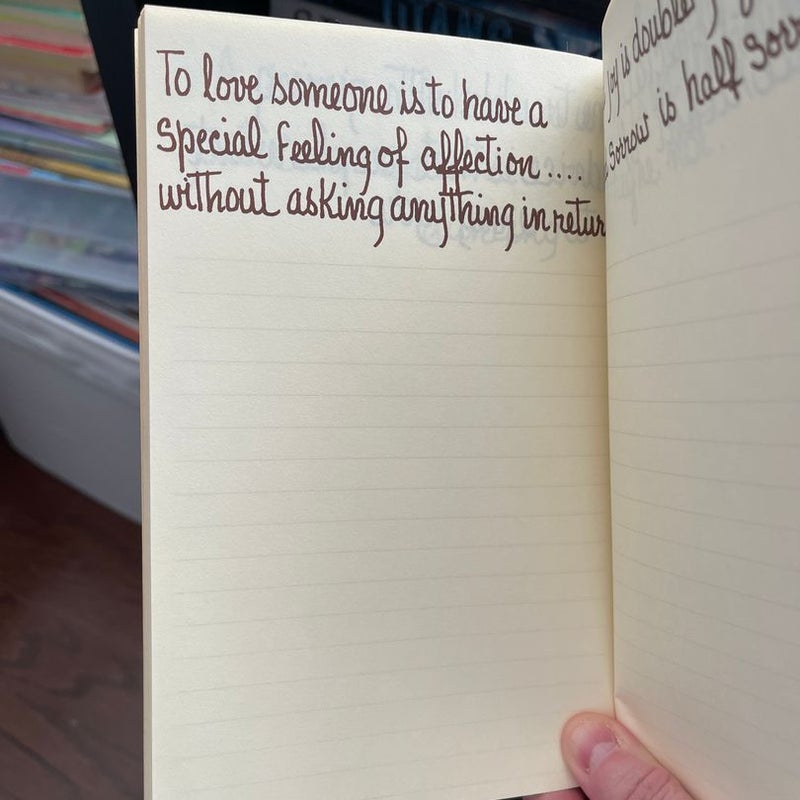 To love someone is to have a
Special Feeling of affection ....
without asking anything in retur
Joy is double
Sorrow is half Sorr